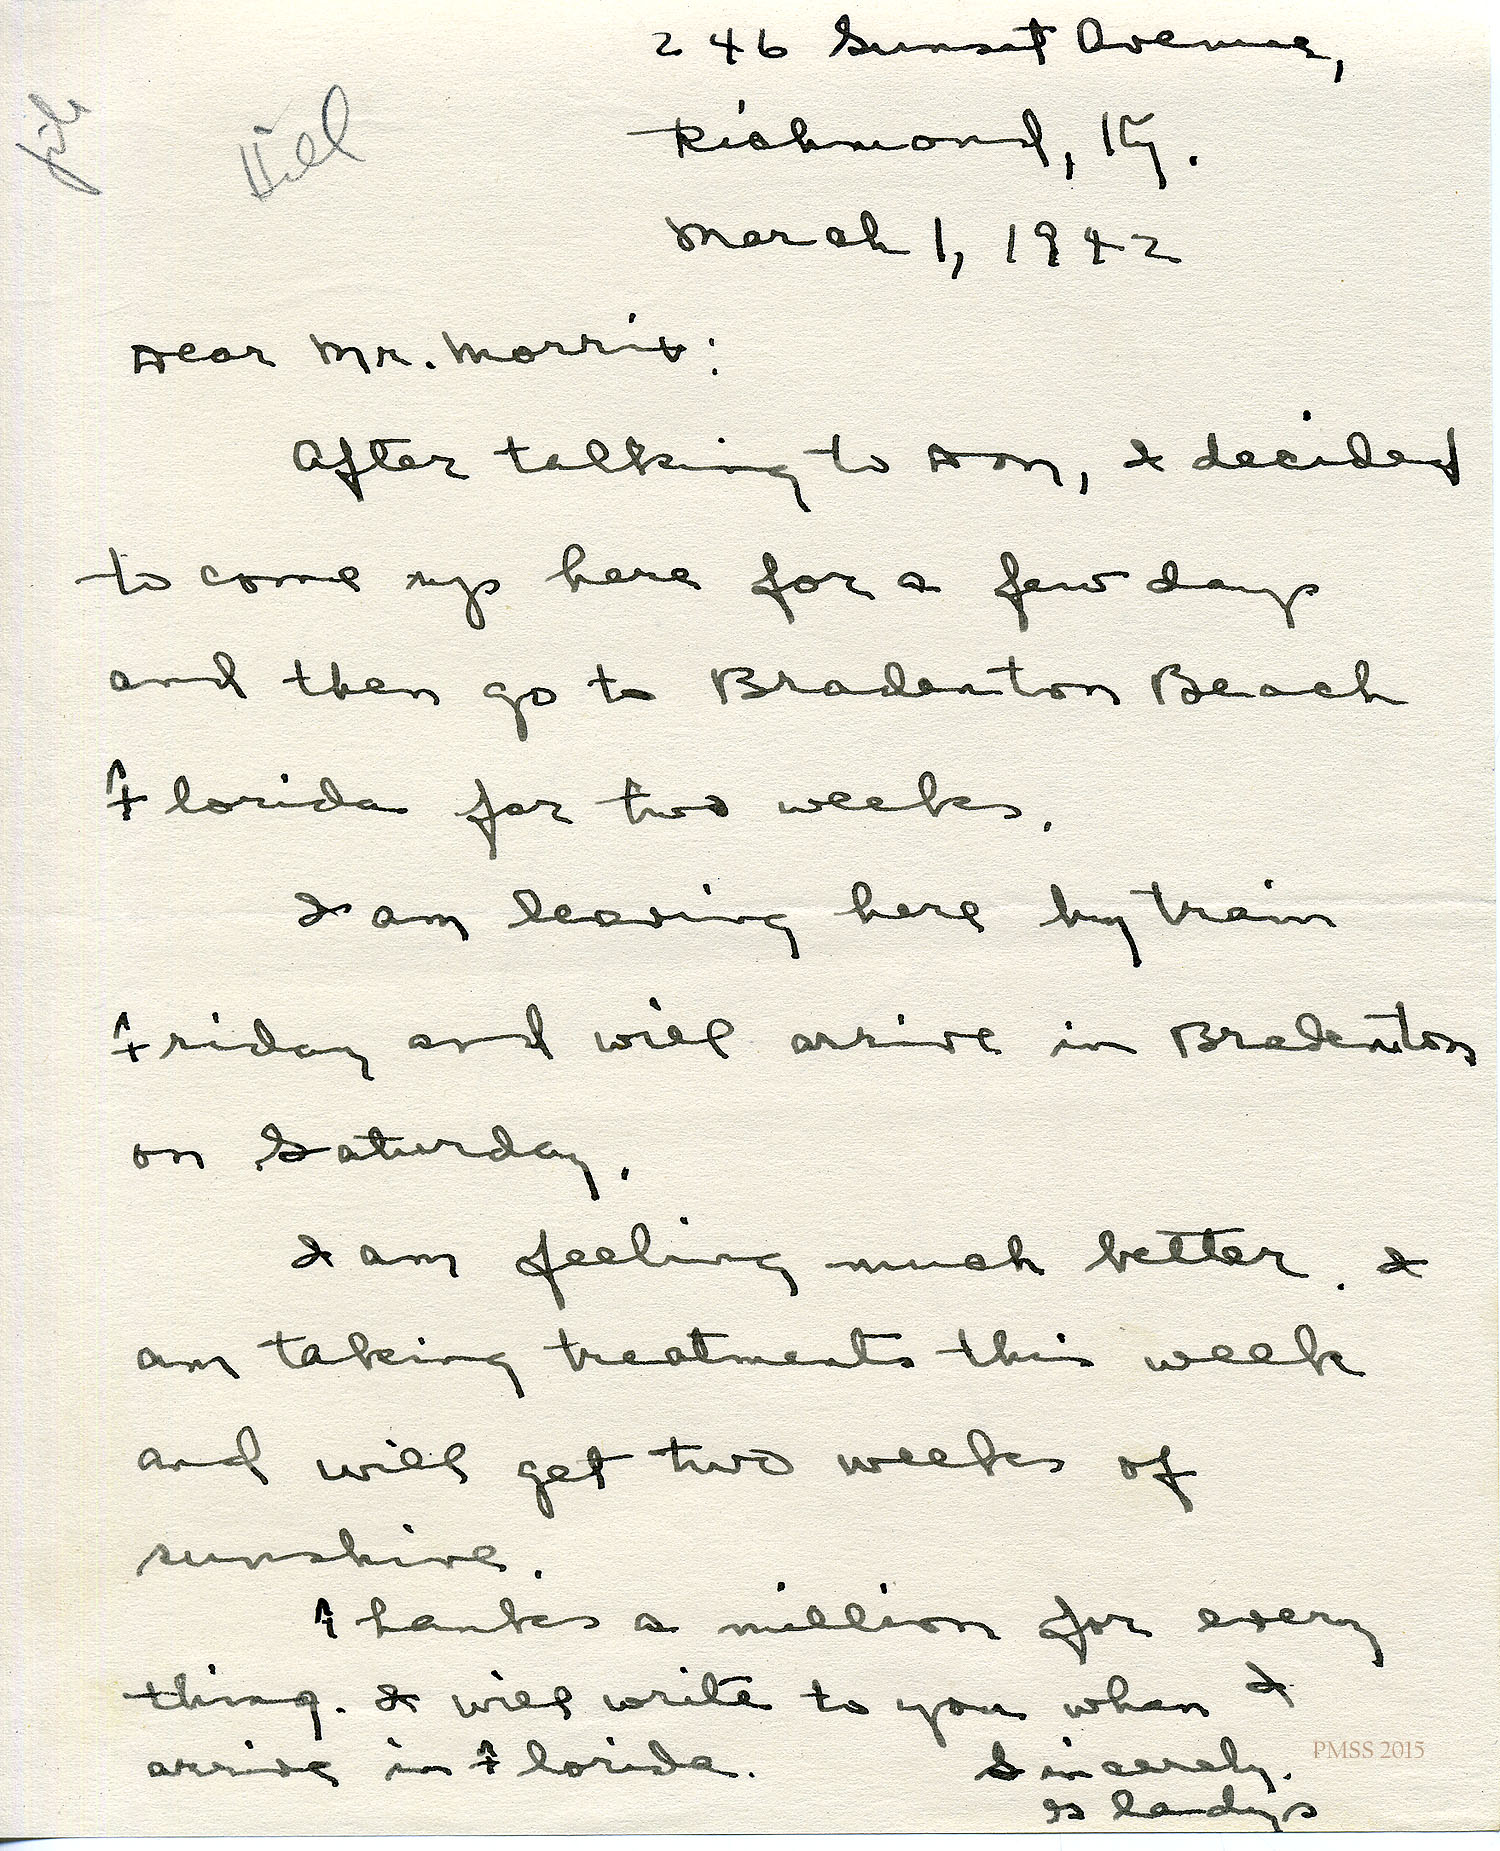 246 Sunset Avenue,
Richmond, Ky.
March 1, 1942
file
Hill
Dear Mr. Morris:
After talking to Don, I decided
to come up here for a few days
and then go to Bradenton Beach
Florida for two weeks.
I am leaving here by train
Friday and will arrive in Bradenton
on Saturday.
I am feeling much better. I
am taking treatments this week
and will get two weeks of
sunshine.
Thanks a million for every
thing. I will write to you when I
arrive in Florida.
Sincerely.
Gladys
PMSS 2015